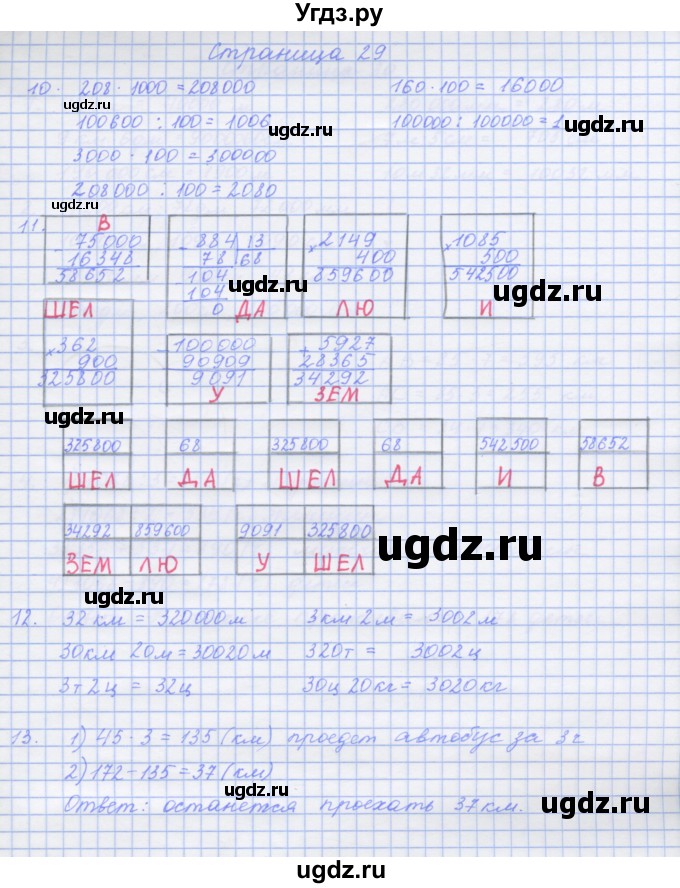 Угдз.ру
Страница 29
10. 208 · 1000 = 208000 160 · 100 = 16000
100600 : 100 = 1006 100000 : 100000 = 1
3000 · 100 = 300000
208000 : 100 = 2080
11. В
- 75000 - 884 | 13 × 2149 × 1085
16348 78 | 68 400 500
58652 - 104 859600 542500
104
0
ШЕЛ ДА ЛЮ И
× 362 - 100000 + 5927
900 90909 28365
325800 9091 34292
У ЗЕМ
325800 68 325800 68 542500 58652
ШЕЛ ДА ШЕЛ ДА И В
34292 859600 9091 325800
ЗЕМ ЛЮ У ШЕЛ
12. 32 км = 320000 м 3 км 2 м = 3002 м
30 км 20 м = 30020 м 320 т = 3002 ц
3 т 2 ц = 32 ц 30 ц 20 кг = 3020 кг
13. 1) 45 · 3 = 135 (км) проедет автобус за 3 г
2) 172 - 135 = 37 (км)
Ответ: останется проехать 37 км.
ugdz.ru
ugdz.ru
ugdz.ru
ugdz.ru
ugdz.ru
ugdz.ru
ugdz.ru
ugdz.ru
ugdz.ru
ugdz.ru
ugdz.ru
ugdz.ru
ugdz.ru